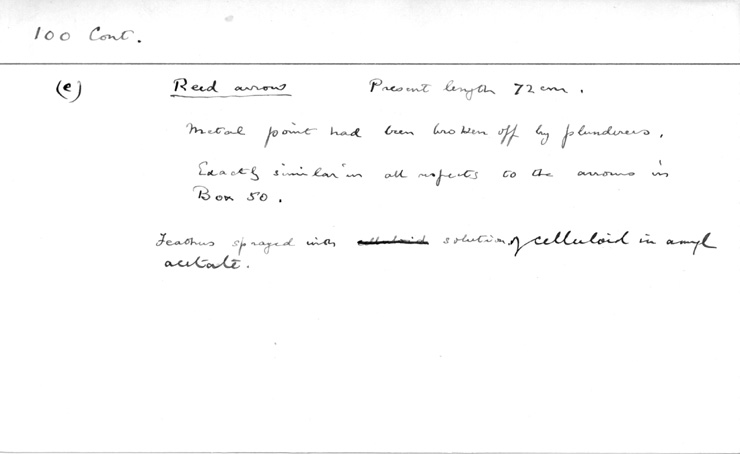 100 Cont.
(e) Reed arrows Present length 72 cm.
Metal point had been broken off by plunderers.
Exactly similar in all respects to the arrows in
Box 50.
Feathers sprayed with celluloid solution of celluloid in amyl
acetate.